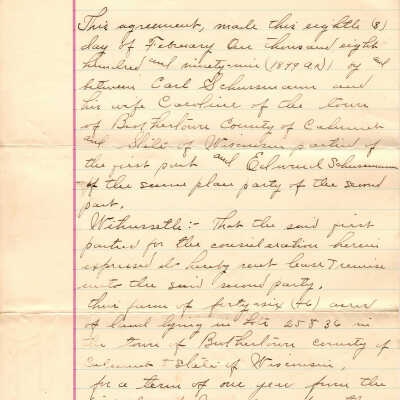 This agreement, made this eighth (8)
day of February One thousand eight
hundred and ninety-nine (1899 A.D.) by and
between Carl Schuesmann and
his wife Caroline of the town
of Brothertown County of Calumet
and State of Wisconsin parties of
the first part and Edward Schuesmann
of the same place party of the second
part,
Witnesseth:- That the said first
parties for the consideration herein
expressed do hereby rent lease &
unto the said second party,
their farm of forty-six (46) acres
of land lying in 25 & 36 in
the town of Brothertown county of
Calumet & State of Wisconsin,
for a term of one year from the